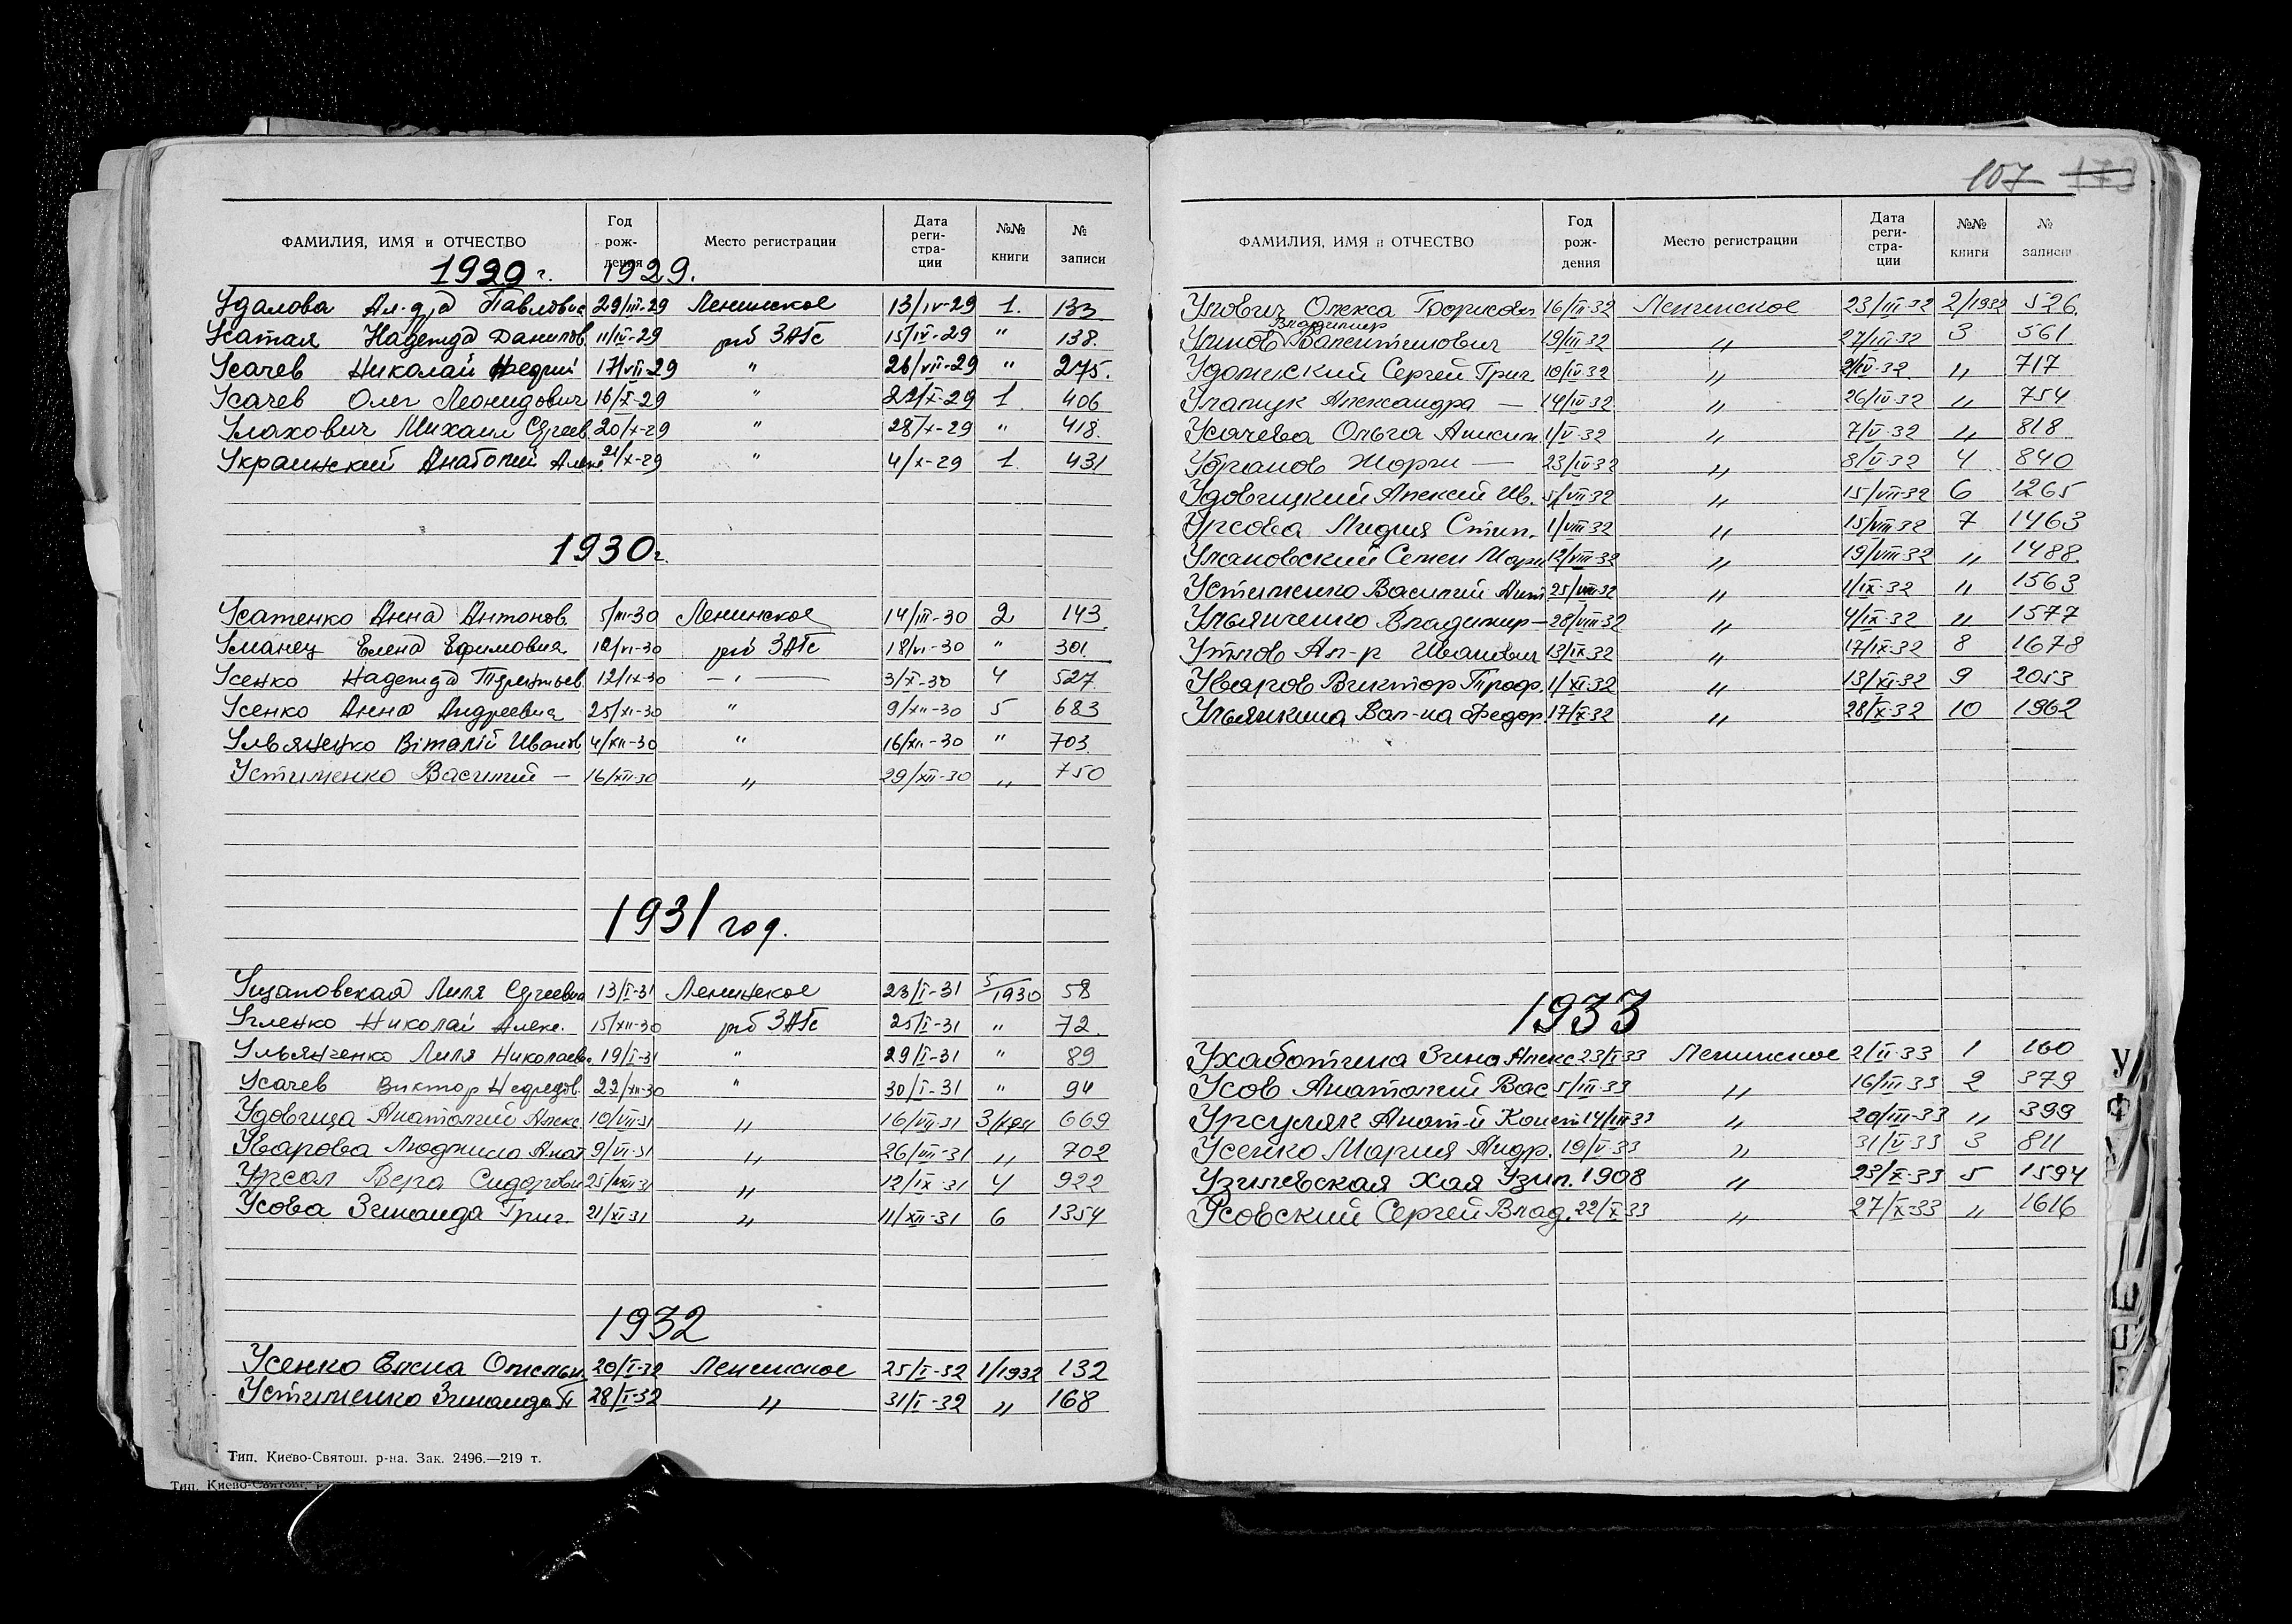 ФАМИЛИЯ, ИМЯ и ОТЧЕСТВО Год рождения Место регистрации Дата регистрации №№ книги № записи
1920 г. 1929.
Удалова Ал-д,а Павловна 29/III-29 Ленинское 13/IV-29 1. 133
Усатая Надежда Данилов. 11/IV-29 рб ЗАГс 15/IV-29 " 138.
Усачев Николай 17/VII-29 " 26/VII-29 " 275.
Усачев Олег Леонидович 16/X-29 " 1 406
Улахович Михаил Сергеев. 20/X-29 " 28/X-29 " 418.
Украинский Анатолий Алек 21/X-29 " 4/X-29 1. 431
1930г.
Усатенко Анна Антонов. 5/III-30 Ленинское 14/III-30 2 143
Уманец Елена Ефимовна /VI-30 рб ЗАГс 18/VI-30 " 301.
Усенко Надежда Терентьев. 12/IX-30 — " — 3/X-30 4 527.
Усенко Анна Андреевна 25/XI-30 " 9/XII-30 5 683
Ульяненко Віталій Иванов 4/XII-30 " 16/XII-30 " 703.
Устименко Василий — 16/XII-30 " 29/XII-30 " 750
1931 год.
Лиля Сергеевна 13/I-31 Ленинское 23/I-31 5/1930 58
Николай Алекс. 15/XII-30 рб ЗАГс 25/I-31 " 72.
Ульянченко Лиля Николаевн. 19/I-31 " 29/I-31 " 89
Усачев Виктор 22/XII-30 " 30/I-31 " 94
Удовица Анатолий Алекс. 10/VII-31 " 16/VII-31 669
Уварова Людмила Анат 9/VI-31 " 26/VII-31 " 702
Урсал Вера Сидоровн 25/VIII-31 " 12/IX-31 4 922
Усова Зинаида Григ. 21/XI-31 " 11/XII-31 6 1354
1932
Усенко Елена Омельян. 20/I-32 Ленинское 25/I-32 1/1932 132
Устименко Зинаида 28/I-32 " 31/I-32 " 168
Тип. Киево-Святош. р-на. Зак. 2496.—219 т.
Тип. Киево-Святош. р
107 173
ФАМИЛИЯ, ИМЯ и ОТЧЕСТВО Год рождения Место регистрации Дата регистрации №№ книги № записи
Улович Олекса Борисови 16/III-32 Ленинское 23/III-32 2/1932 526.
Владимир
Валентинович 19/III-32 " 27/III-32 3 561
Сергей Григ. 10/IV-32 " " 717
Улащук Александра — 14/IV-32 " 26/IV-32 " 754
Усачева Ольга Анисим 1/V-32 " 7/V-32 " 818
Жорж — 23/IV-32 " 8/V-32 4 840
Удовицкий Алексей Ив. 5/VII-32 " 15/VII-32 6 1265
Урсова Лидия Степ. 1/VIII-32 " 15/VIII-32 7 1463
Улановский Семен Марк 12/VIII-32 " 19/VIII-32 " 1488.
Устименко Василий Ант 25/VIII-32 " 1/IX-32 " 1563
Ульянченко Владимир — 28/VIII-32 " 4/IX-32 " 1577
Ал-р Иванович 13/IX-32 " 17/IX-32 8 1678
Уваров Виктор Троф. 1/XI-32 " 13/XI-32 9 2053
Ульянкина Вал-на Федор. 17/X-32 " 28/X-32 10 1962
1933
Ухаботина Зина Алекс 23/I-33 Ленинское 2/II-33 1 160
Усов Анатолий Вас 5/III-33 " 16/III-33 2 379
Урсуляк Анат-й Конст 14/III-33 " 20/III-33 " 399
Усенко Мария Андр. 19/V-33 " 31/V-33 3 811
Узилевская Хая Узил. 1908 " 23/X-33 5 1594
Усовский Сергей Влад. 22/X-33 " 27/X-33 " 1616
У
Ф
Ш